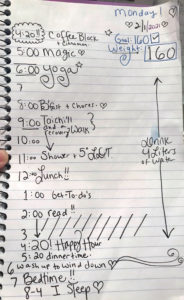 Monday! ♡
♡ 2/1/2021 ♡
Goal: 160 ✓
Weight: 160
4:20!! Coffee Black
+ cinnamon
5:00 Magic ♡
6:00 Yoga ☆
7
8:00 Bfast + Chores. ♡
9:00 Taichi!!
and a recovery walk
10:00
11:00 Shower + 5"
12:00 Lunch!!
1:00 Get-To-do's
2:00 read!!
3:00
4:20! Happy Hour
5:20 dinner time
6 wash up to wind down ♡
7 Bedtime!!
8-4 I sleep ♡
Drink
4 Liters
of water